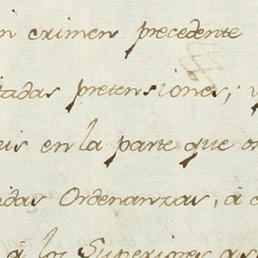 in crimen precedente
tadas pretensiones;
en la parte que
Ordenanzas, a
á los Superiores